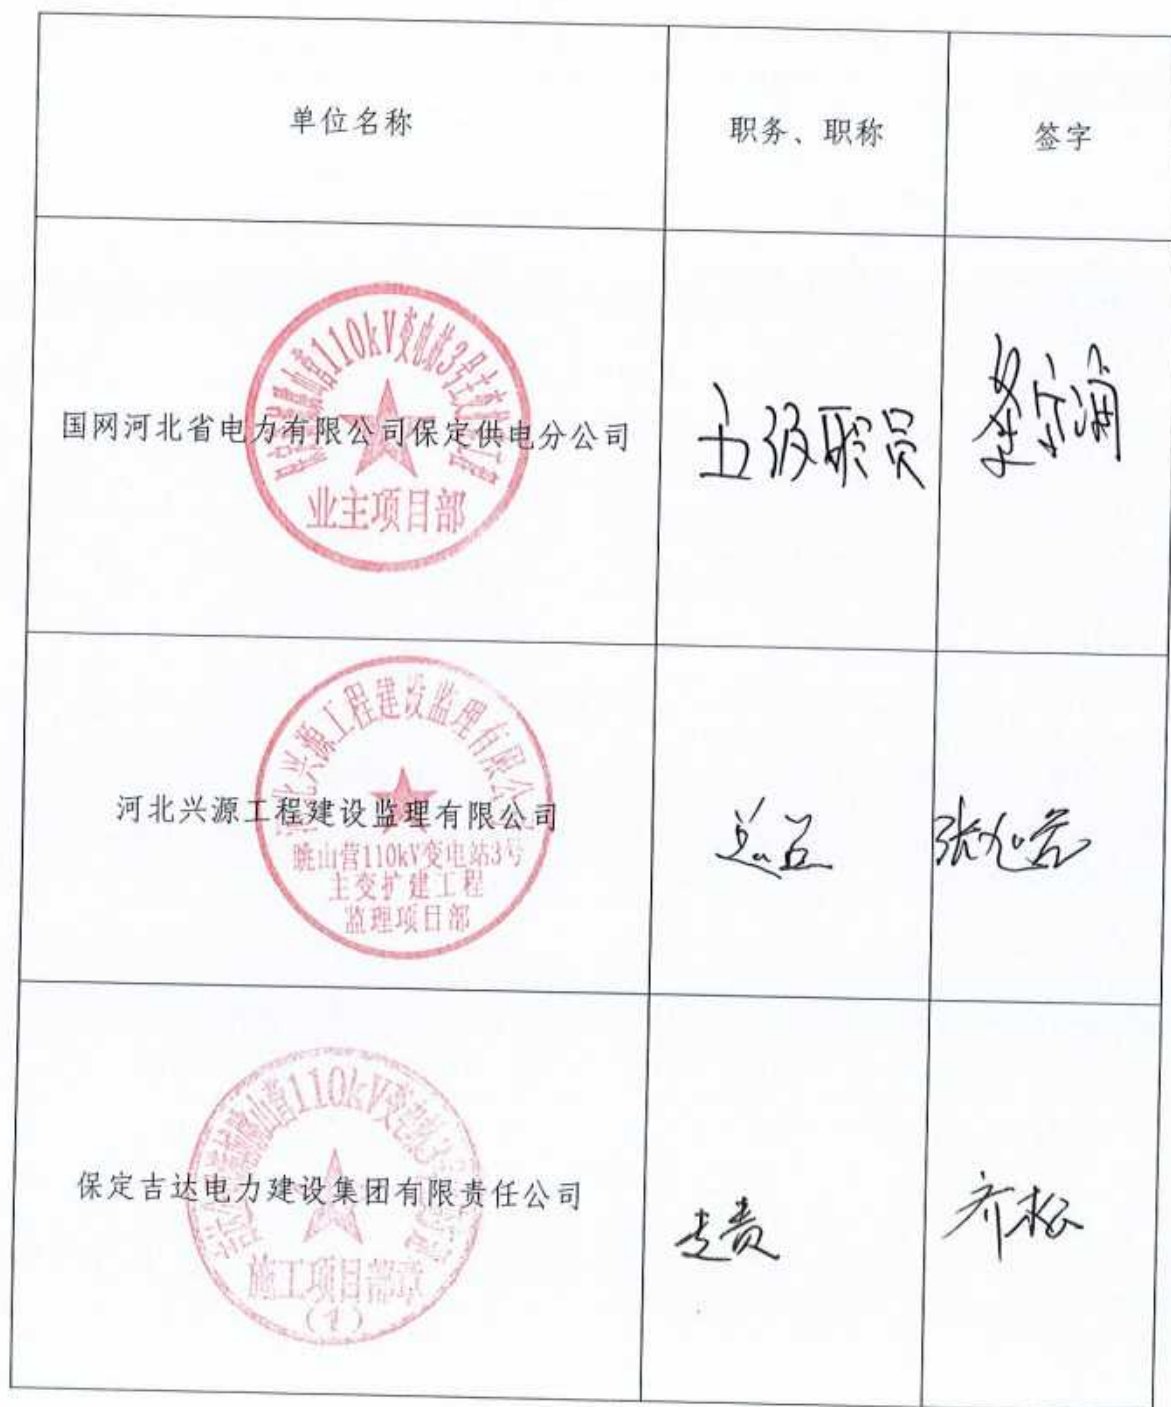 单位名称
职务、职称
签字
国网河北省电力有限公司保定供电分公司
110kV变电站3号主变扩建工程
业主项目部
五级职员
河北兴源工程建设监理有限公司
河北兴源工程建设监理有限公
眺山营110kV变电站3号
主变扩建工程
监理项目部
总监
保定吉达电力建设集团有限责任公司
山营110kV变电站3号
施工项目部章
(1)
专责
乔松